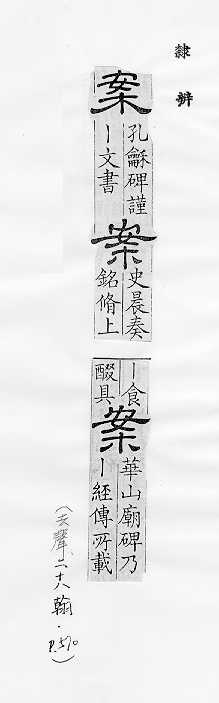 隸辨
案
孔龢碑謹
丨文書
案
史晨奏
銘脩上
丨食
醊具
案
華山廟碑乃
丨經傳所載
(去聲二十八翰．P.570)